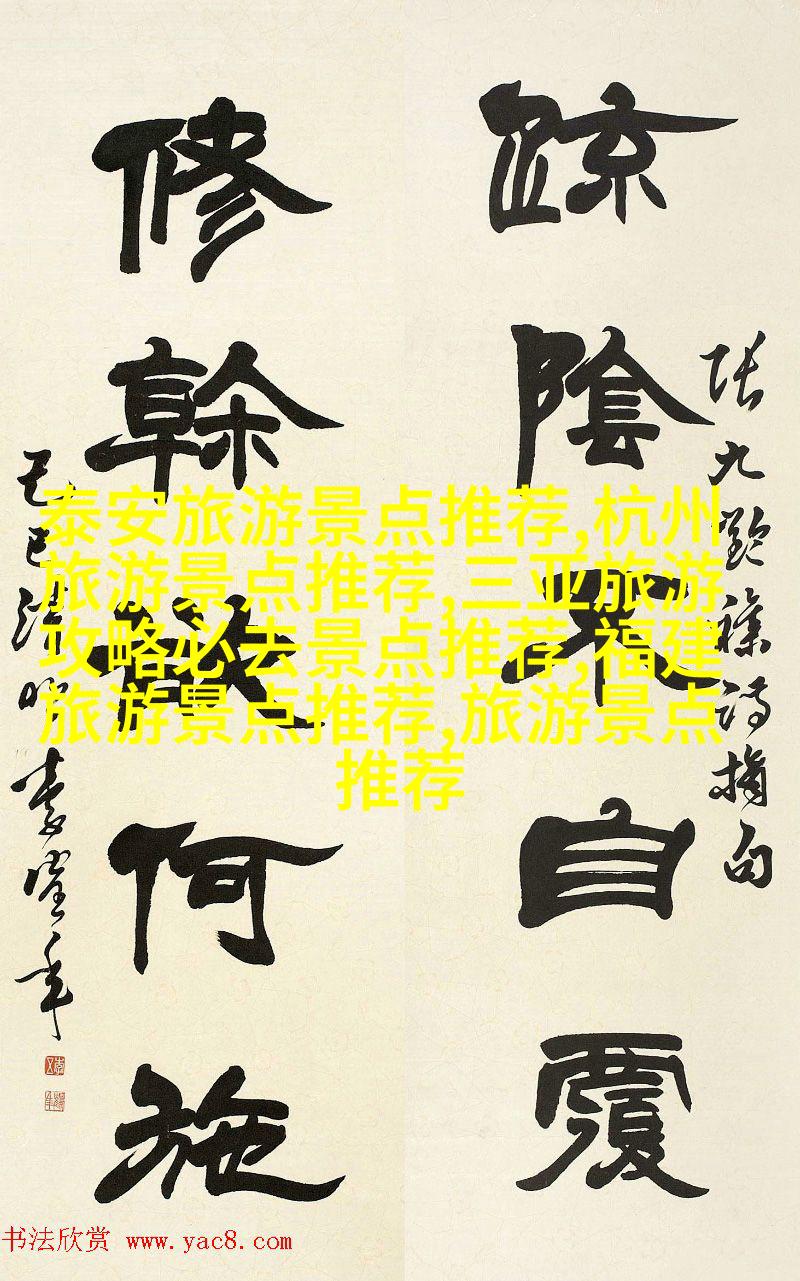 张九齡襍詩摘句
踈陰不自覆
修榦欲何施
己巳清明
泰安旅游景点推荐,杭州
旅游景点推荐,三亚旅游
攻略必去景点推荐,福建
旅游景点推荐,旅游景点
推荐
书法欣赏 www.yac8.com